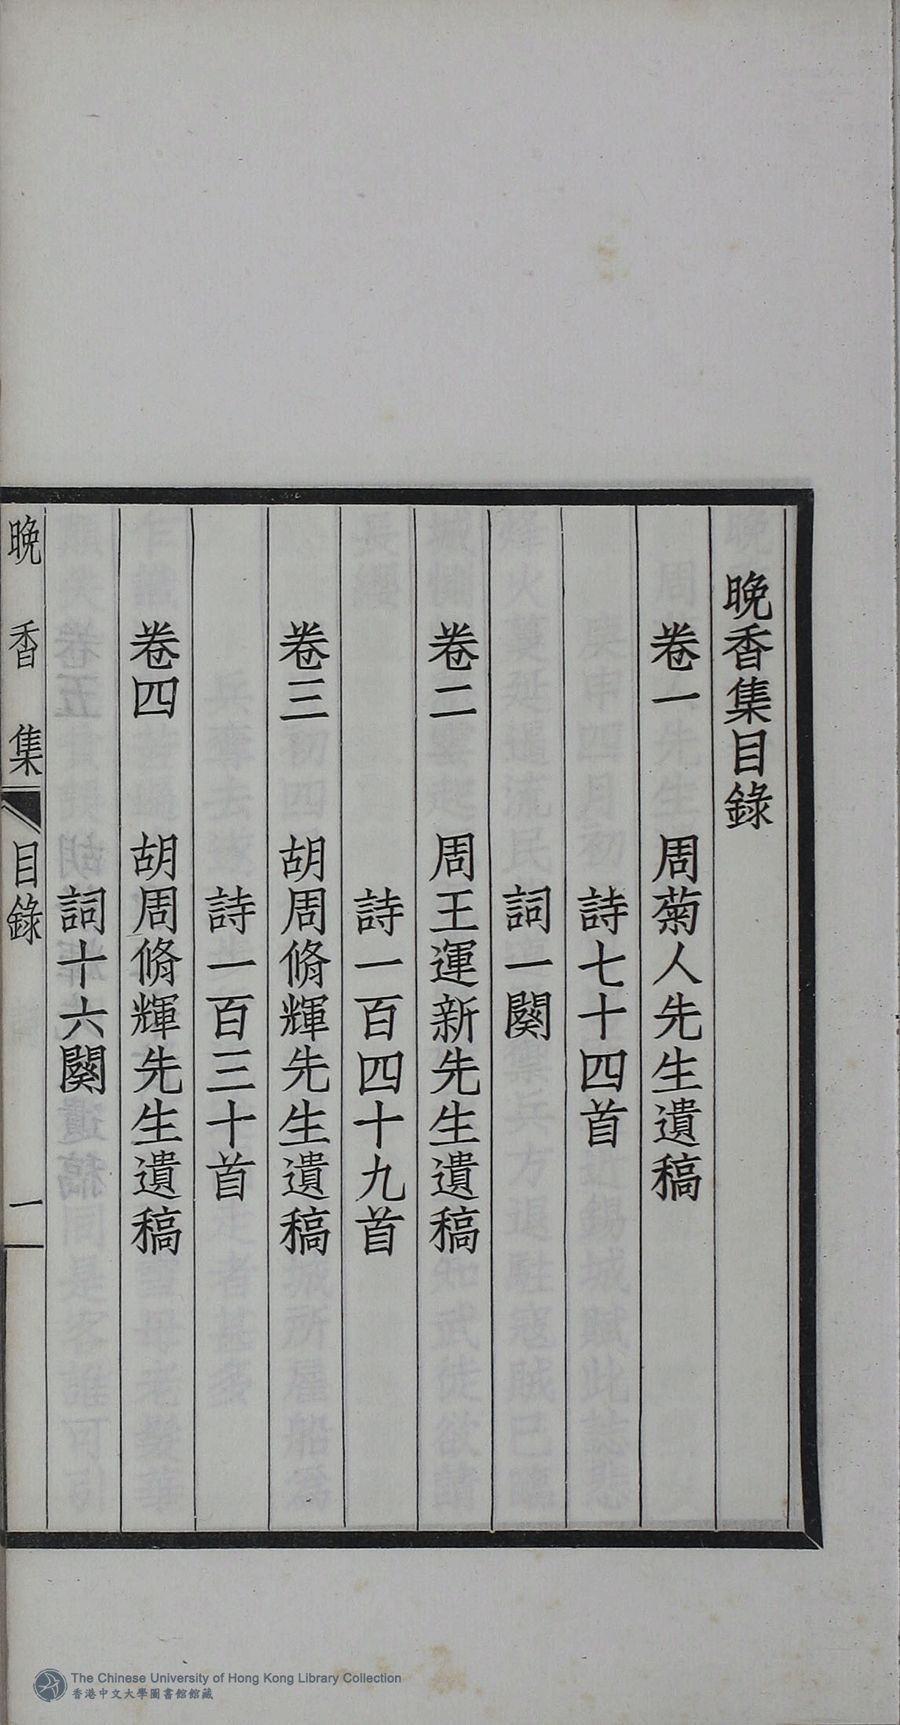 晩香集目錄
卷一　周菊人先生遺稿
詩七十四首
詞一闋
卷二　周王運新先生遺稿
詩一百四十九首
卷三　胡周脩輝先生遺稿
詩一百三十首
卷四　胡周脩輝先生遺稿
詞十六闋
晩香集　目錄　一
The Chinese University of Hong Kong Library Collection
香港中文大學圖書館館藏